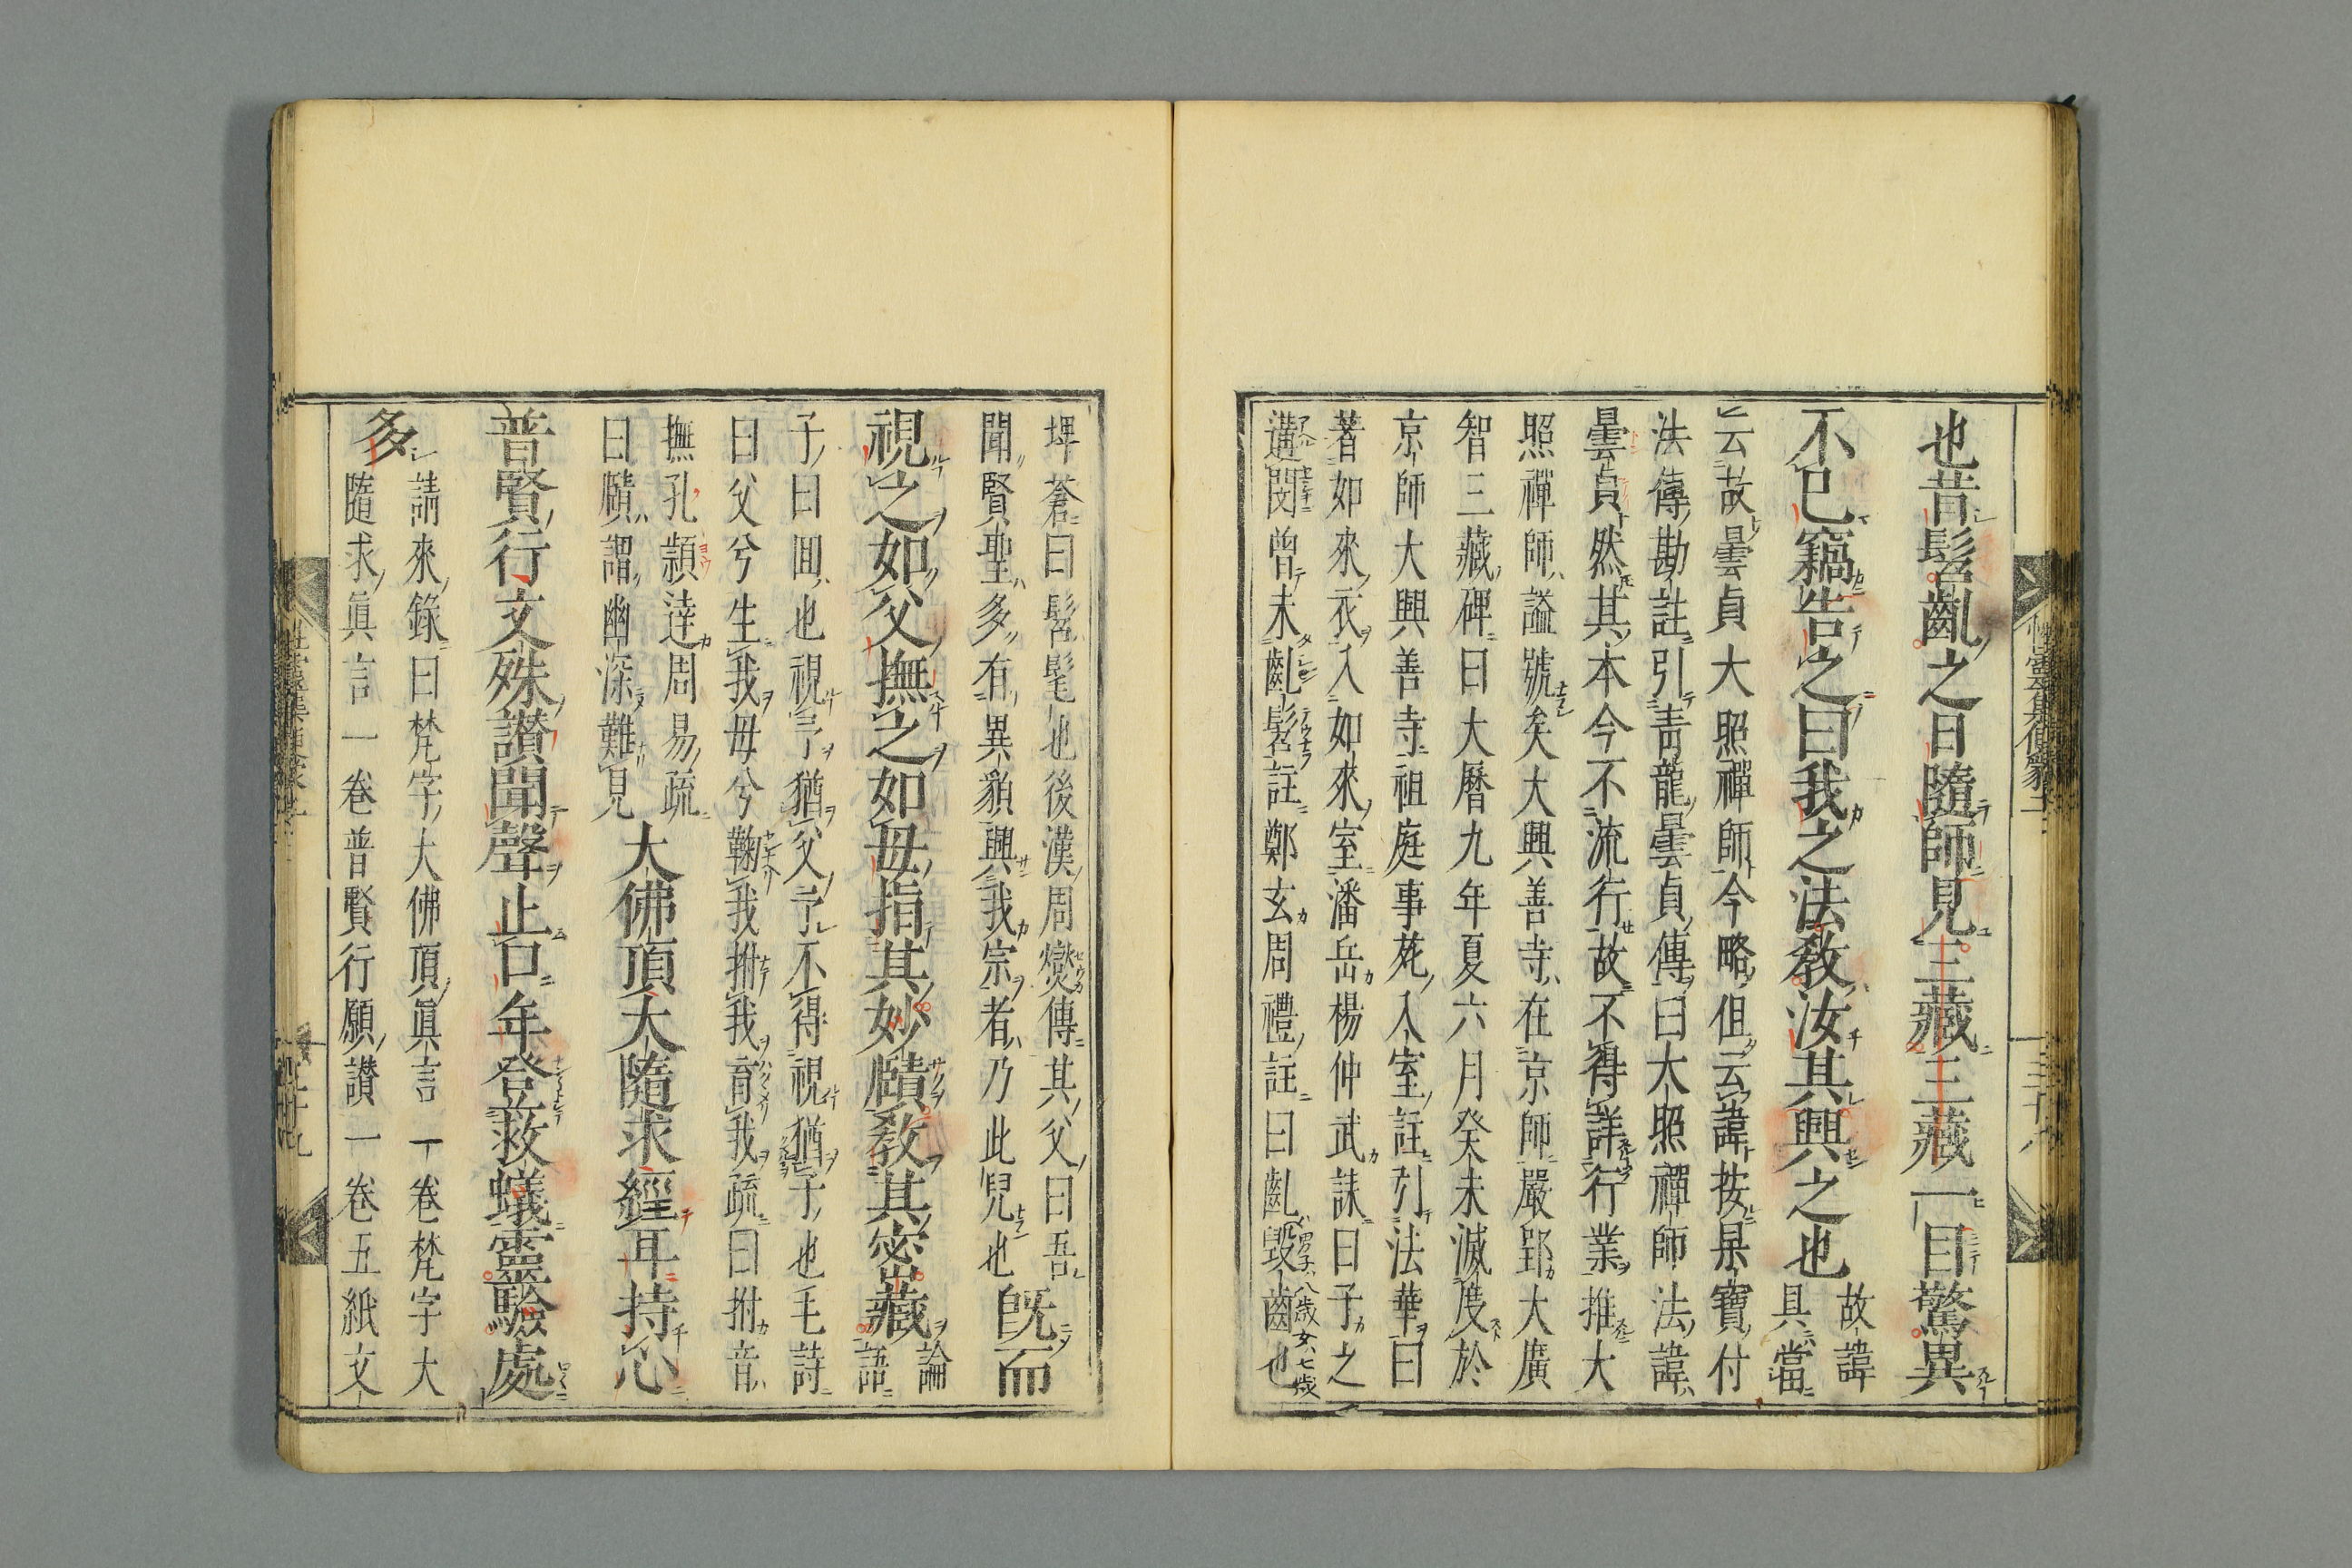 也昔髫齔之日隨師見三藏三藏一目驚異
不已竊告之曰我之法教汝其興之也故諱
具當
云故曇貞大照禪師今略但云諱按杲寶付
法傳勘註引靑龍曇貞傳曰大照禪師法諱
曇貞然其本今不流行故不得詳行業推大
照禪師謚號矣大興善寺在京師嚴郢大廣
智三藏碑曰大曆九年夏六月癸未滅度於
京師大興善寺祖庭事苑入室註引法華曰
著如來衣入如來室潘岳楊仲武誄曰子之
遘閔曾未齔髫註鄭玄周禮註曰齔毀齒也男子八歲女七歲
埤蒼曰髫髦也後漢周爕傳其父曰吾
聞賢聖多有異貌興我宗者乃此兒也旣而
視之如父撫之如母指其妙賾教其密藏論
語
子曰回也視予猶父予不得視猶子也毛詩
曰父兮生我母兮鞠我拊我育我疏曰拊音
撫孔頴達周易疏
曰賾謂幽深難見大佛頂大隨求經耳持心
普賢行文殊讃聞聲止口年登救蟻靈驗處
多請來錄曰梵字大佛頂眞言一卷梵字大
隨求眞言一卷普賢行願讃一卷五紙文
性靈集便蒙二
三十八